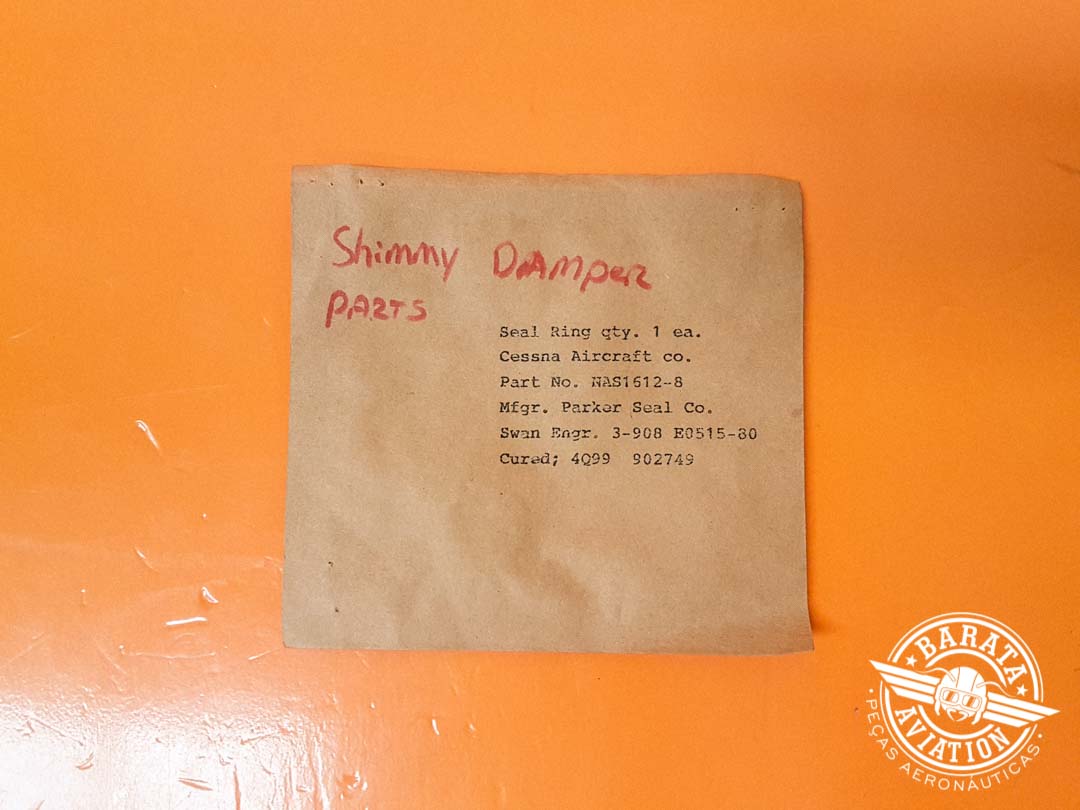 Shimmy DAmper
PARTS
Seal Ring qty. 1 ea.
Cessna Aircraft co.
Part No. NAS1612-8
Mfgr. Parker Seal Co.
Swan Engr. 3-908 E0515-80
Cured; 4Q99 902749
BARATA
AVIATION
PEÇAS AERONÁUTICAS